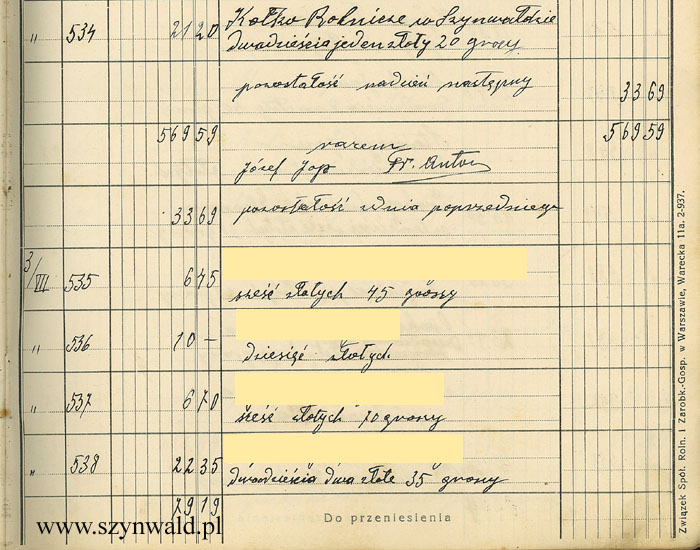 " 534 21 20 Kółko Rolnicze w Szynwałdzie
dwadzieścia jeden złoty 20 groszy
pozostałość na dzień następny 33 69
569 59 razem 569 59
Józef Jop Fr. Anton
33 69 pozostałość z dnia poprzedniego
3/VII 535 6 45
sześć złotych 45 groszy
" 536 10 –
dziesięć złotych
" 537 6 70
sześć złotych 70 groszy
" 538 22 35
dwadzieścia dwa złote 35 groszy
79 19 Do przeniesienia
www.szynwald.pl
Związek Spół. Roln. i Zarobk.-Gosp. w Warszawie, Warecka 11a. 2-937.